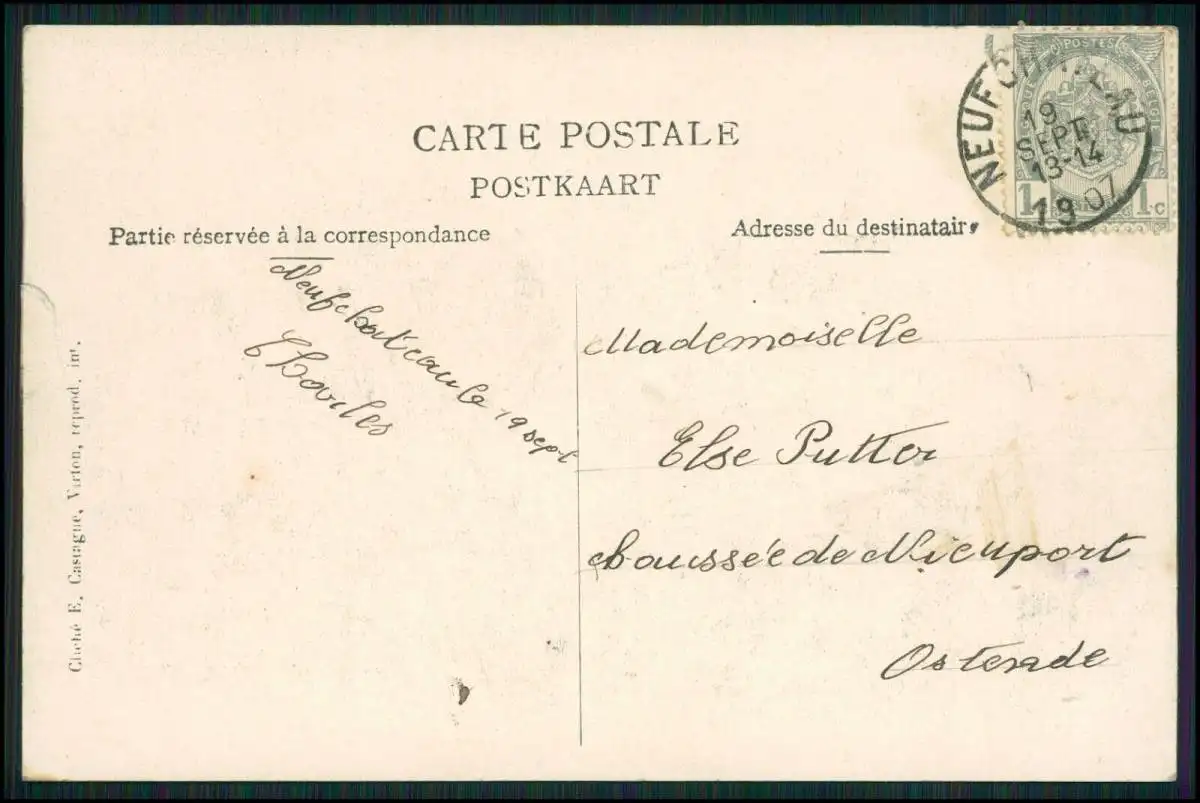 CARTE POSTALE
POSTKAART
Partie réservée à la correspondance
Adresse du destinataire
POSTES
NEUFCHATEAU
19
SEPT.
13-14
1907
1 1 c
Neufchateau le 19 sept
Mademoiselle
Else Putter
chaussée de Nieuport
Ostende
Cliché E. Castagne, Virton, reprod. int.